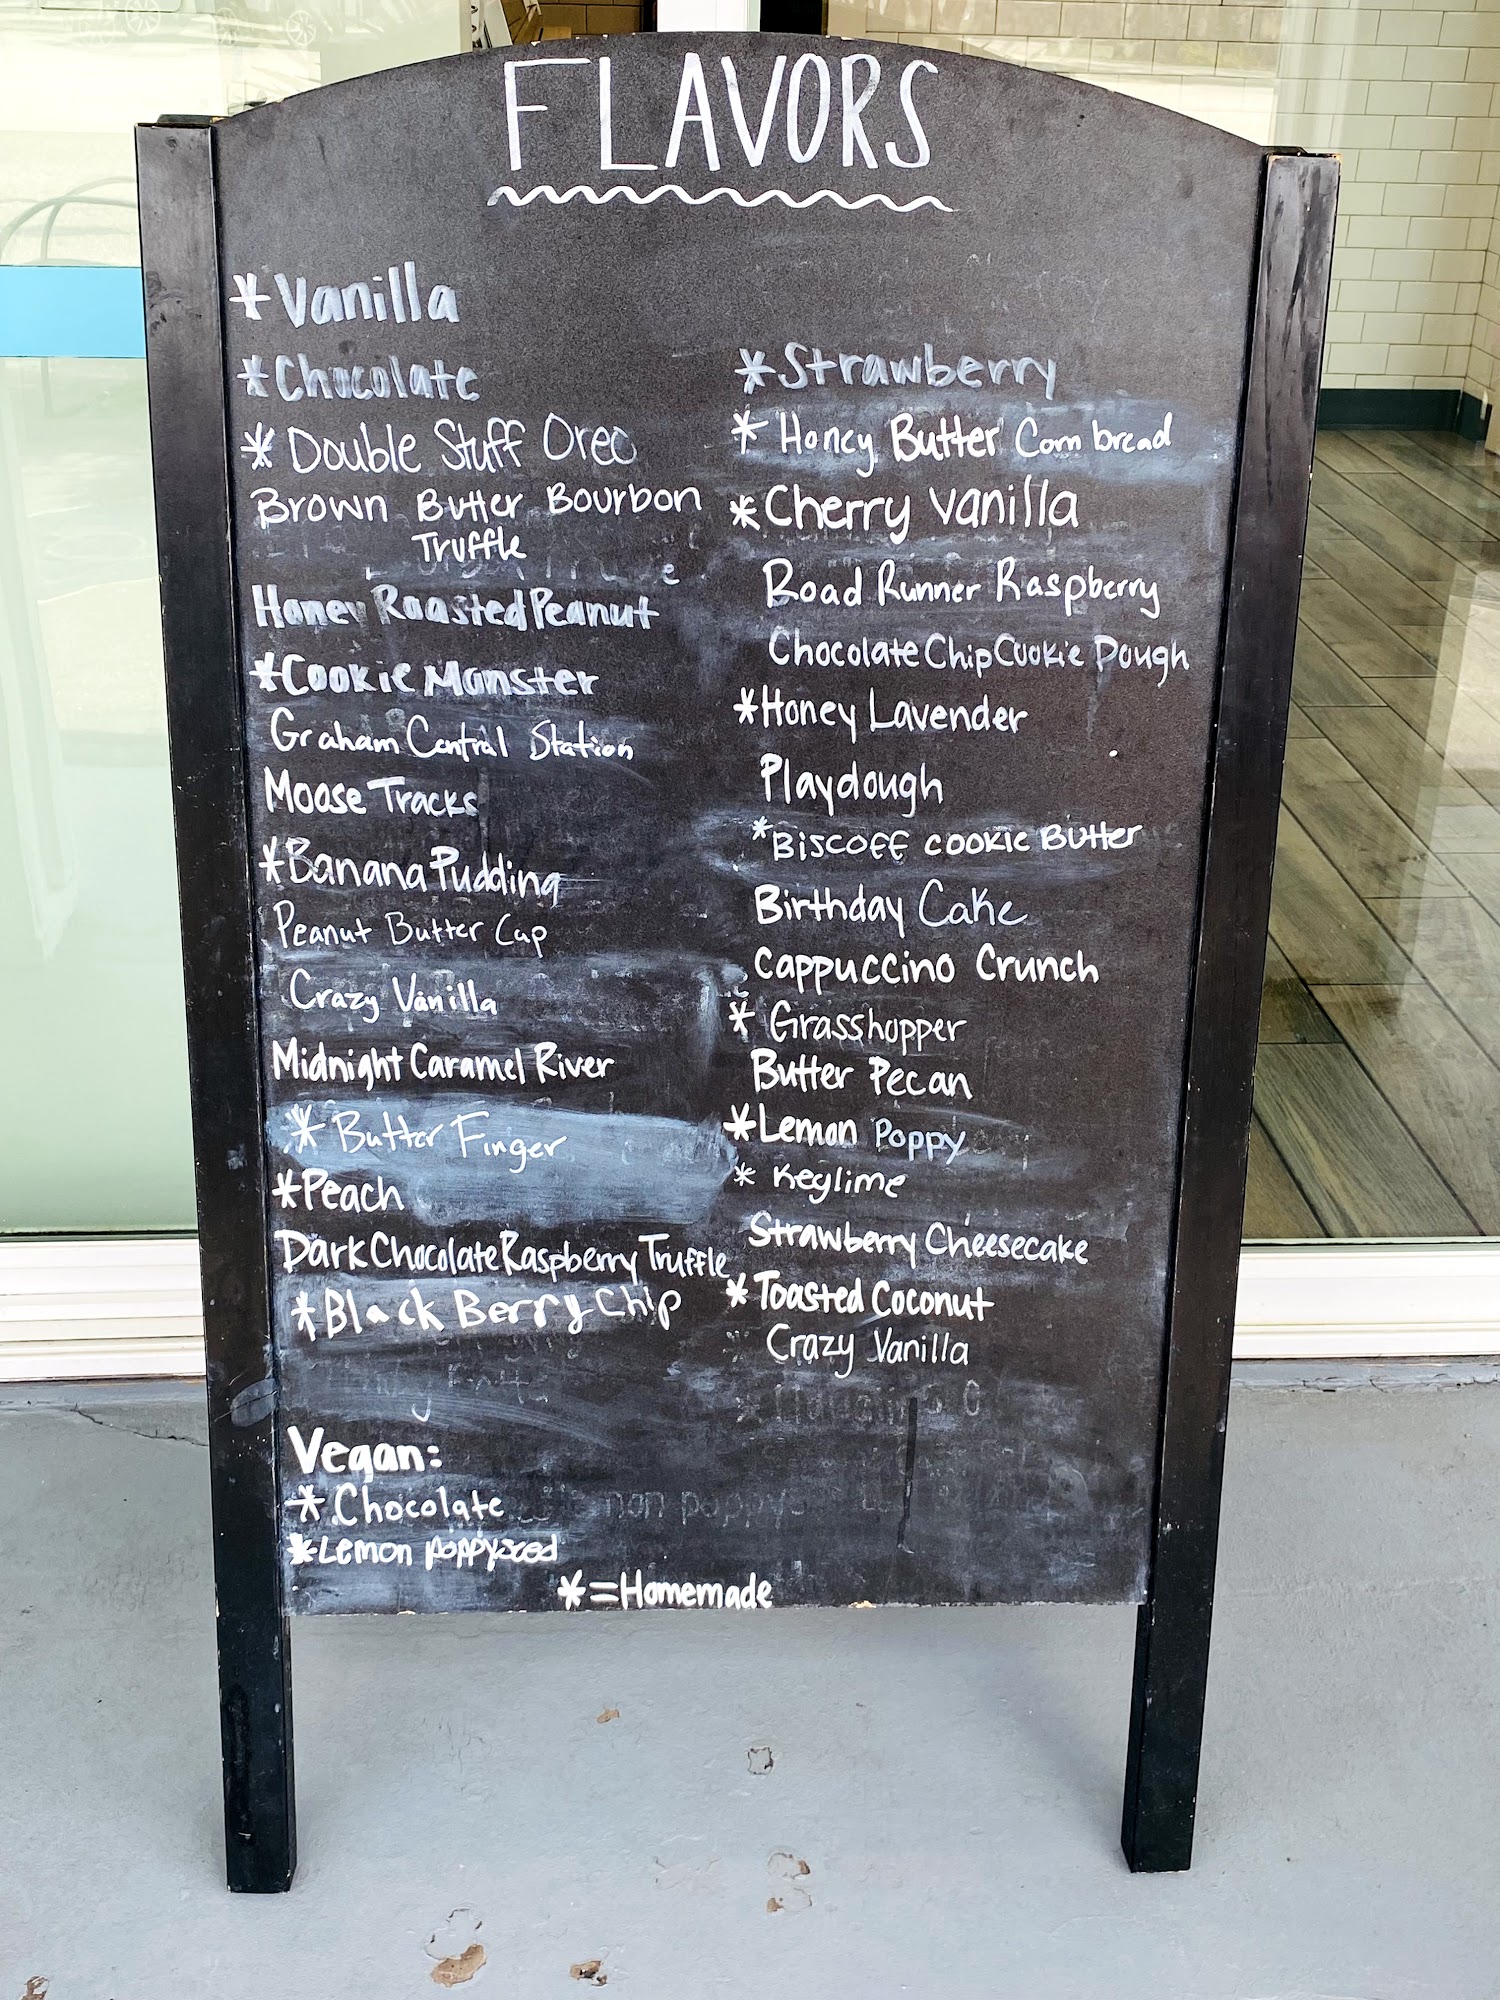 FLAVORS
*Vanilla
*Chocolate
*Double Stuff Oreo
Brown Butter Bourbon
Truffle
Honey Roasted Peanut
*Cookie Monster
Graham Central Station
Moose Tracks
*Banana Pudding
Peanut Butter Cup
Crazy Vanilla
Midnight Caramel River
*Butter Finger
*Peach
Dark Chocolate Raspberry Truffle
*Black Berry Chip
*Strawberry
*Honey Butter Corn bread
*Cherry Vanilla
Road Runner Raspberry
Chocolate Chip Cookie Dough
*Honey Lavender
Playdough
*Biscoff cookie Butter
Birthday Cake
Cappuccino Crunch
*Grasshopper
Butter Pecan
*Lemon Poppy
*Keylime
Strawberry Cheesecake
*Toasted Coconut
Crazy Vanilla
Vegan:
*Chocolate
*Lemon poppyseed
*=Homemade